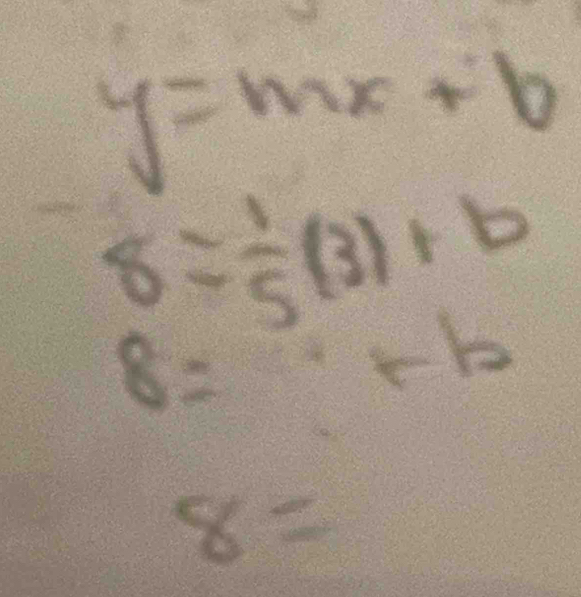 y = mx + b
8 = 1/5 (3) + b
8 = + b
8 =